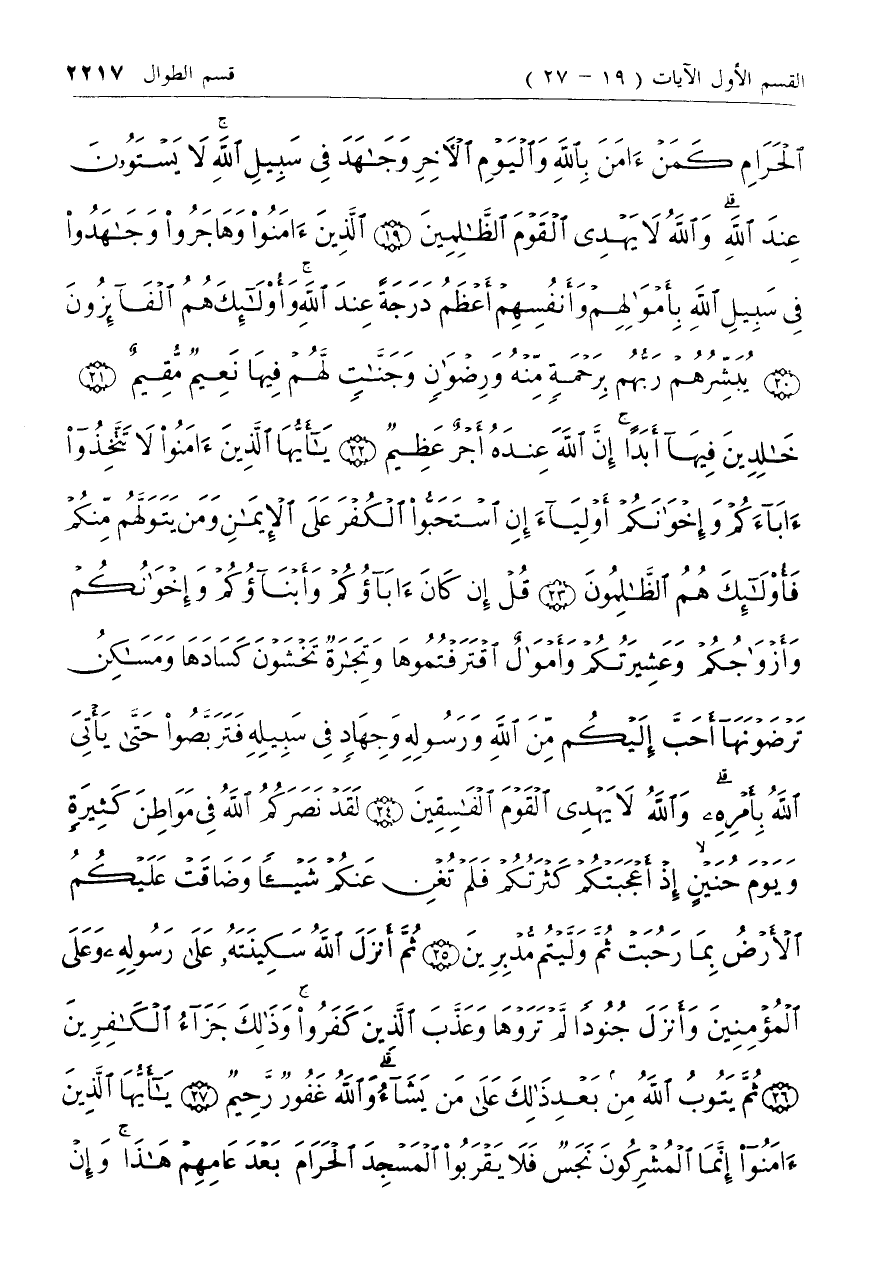 القسم الأول الآيات ( ١٩ - ٢٧ ) قسم الطوال ٢٢١٧
ٱلْحَرَامِ كَمَنْ ءَامَنَ بِٱللَّهِ وَٱلْيَوْمِ ٱلْأَخِرِ وَجَٰهَدَ فِى سَبِيلِ ٱللَّهِ ۚ لَا يَسْتَوُۥنَ
عِندَ ٱللَّهِ ۗ وَٱللَّهُ لَا يَهْدِى ٱلْقَوْمَ ٱلظَّٰلِمِينَ ﴿١٩﴾ ٱلَّذِينَ ءَامَنُوا۟ وَهَاجَرُوا۟ وَجَٰهَدُوا۟
فِى سَبِيلِ ٱللَّهِ بِأَمْوَٰلِهِمْ وَأَنفُسِهِمْ أَعْظَمُ دَرَجَةً عِندَ ٱللَّهِ ۚ وَأُو۟لَٰٓئِكَ هُمُ ٱلْفَآئِزُونَ
﴿٢٠﴾ يُبَشِّرُهُمْ رَبُّهُم بِرَحْمَةٍ مِّنْهُ وَرِضْوَٰنٍ وَجَنَّٰتٍ لَّهُمْ فِيهَا نَعِيمٌ مُّقِيمٌ ﴿٢١﴾
خَٰلِدِينَ فِيهَآ أَبَدًا ۚ إِنَّ ٱللَّهَ عِندَهُۥٓ أَجْرٌ عَظِيمٌ ﴿٢٢﴾ يَٰٓأَيُّهَا ٱلَّذِينَ ءَامَنُوا۟ لَا تَتَّخِذُوٓا۟
ءَابَآءَكُمْ وَإِخْوَٰنَكُمْ أَوْلِيَآءَ إِنِ ٱسْتَحَبُّوا۟ ٱلْكُفْرَ عَلَى ٱلْإِيمَٰنِ وَمَن يَتَوَلَّهُم مِّنكُمْ
فَأُو۟لَٰٓئِكَ هُمُ ٱلظَّٰلِمُونَ ﴿٢٣﴾ قُلْ إِن كَانَ ءَابَآؤُكُمْ وَأَبْنَآؤُكُمْ وَإِخْوَٰنُكُمْ
وَأَزْوَٰجُكُمْ وَعَشِيرَتُكُمْ وَأَمْوَٰلٌ ٱقْتَرَفْتُمُوهَا وَتِجَٰرَةٌ تَخْشَوْنَ كَسَادَهَا وَمَسَٰكِنُ
تَرْضَوْنَهَآ أَحَبَّ إِلَيْكُم مِّنَ ٱللَّهِ وَرَسُولِهِۦ وَجِهَادٍ فِى سَبِيلِهِۦ فَتَرَبَّصُوا۟ حَتَّىٰ يَأْتِىَ
ٱللَّهُ بِأَمْرِهِۦ ۗ وَٱللَّهُ لَا يَهْدِى ٱلْقَوْمَ ٱلْفَٰسِقِينَ ﴿٢٤﴾ لَقَدْ نَصَرَكُمُ ٱللَّهُ فِى مَوَاطِنَ كَثِيرَةٍ
وَيَوْمَ حُنَيْنٍ ۙ إِذْ أَعْجَبَتْكُمْ كَثْرَتُكُمْ فَلَمْ تُغْنِ عَنكُمْ شَيْـًٔا وَضَاقَتْ عَلَيْكُمُ
ٱلْأَرْضُ بِمَا رَحُبَتْ ثُمَّ وَلَّيْتُم مُّدْبِرِينَ ﴿٢٥﴾ ثُمَّ أَنزَلَ ٱللَّهُ سَكِينَتَهُۥ عَلَىٰ رَسُولِهِۦ وَعَلَى
ٱلْمُؤْمِنِينَ وَأَنزَلَ جُنُودًا لَّمْ تَرَوْهَا وَعَذَّبَ ٱلَّذِينَ كَفَرُوا۟ ۚ وَذَٰلِكَ جَزَآءُ ٱلْكَٰفِرِينَ
﴿٢٦﴾ ثُمَّ يَتُوبُ ٱللَّهُ مِنۢ بَعْدِ ذَٰلِكَ عَلَىٰ مَن يَشَآءُ ۗ وَٱللَّهُ غَفُورٌ رَّحِيمٌ ﴿٢٧﴾ يَٰٓأَيُّهَا ٱلَّذِينَ
ءَامَنُوٓا۟ إِنَّمَا ٱلْمُشْرِكُونَ نَجَسٌ فَلَا يَقْرَبُوا۟ ٱلْمَسْجِدَ ٱلْحَرَامَ بَعْدَ عَامِهِمْ هَٰذَا ۚ وَإِنْ